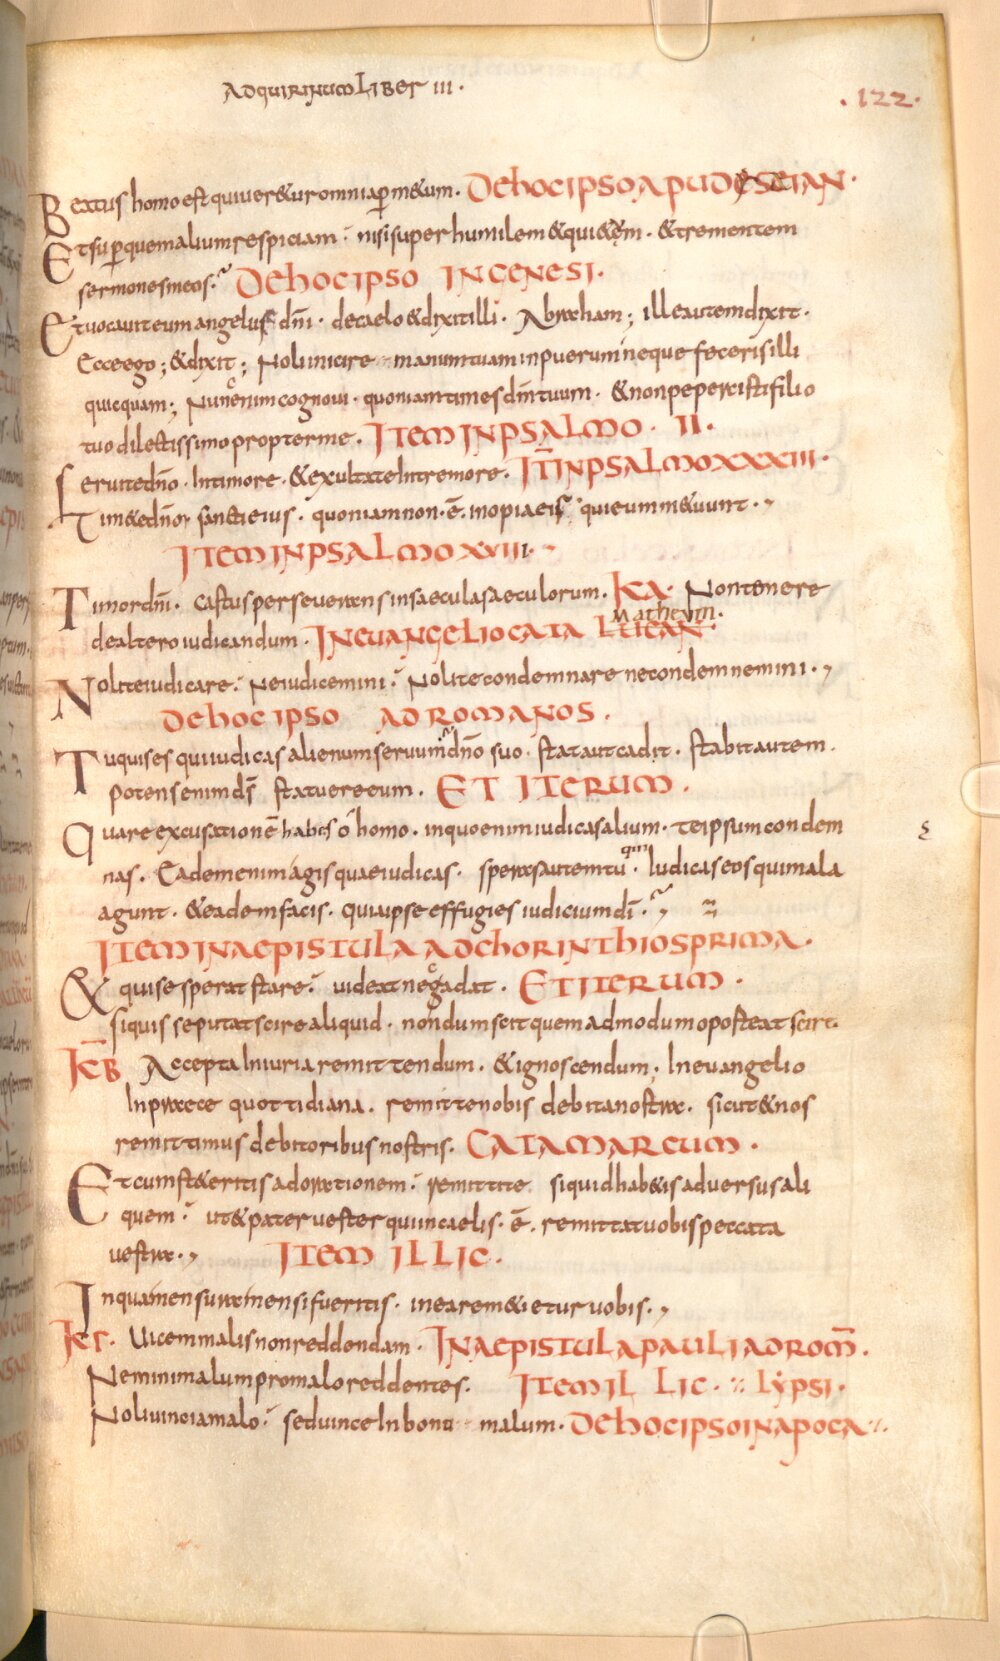 ADQUIRINUM LIBER III.
.122.
Beatus homo est qui ueretur omnia per metum. DEHOCIPSOAPUDESEIAN.
Et super quem alium respiciam nisi super humilem & qui&em. & trementem
sermones meos. DEHOCIPSO INGENESI.
Et uocauit eum angelus dn̄i. de caelo & dixit illi. Abraham; ille autem dixit.
Ecce ego; & dixit; Noli inicere manum tuam in puerum neque feceris illi
quicquam; Nunc enim cognoui. quoniam times dm̄ tuum. & non pepercisti filio
tuo dilectissimo propter me. ITEM INPSALMO. II.
Seruite dn̄o. In timore. & exultate In tremore. IT̄ INPSALMOXXXIII.
Tim& e dn̄o sancti eius. quoniam non. ē. inopia eis qui eum m&uunt.
ITEM INPSALMOXVIII.
Timor dn̄i. castus perseuerans in saecula saeculorum. KA. Non temere
Matheum.
de altero iudicandum. INEUANGELIOCATA LUCAN.
Nolite iudicare. Ne iudicemini. Nolite condemnare ne condemnemini.
DEHOC IPSO ADROMANOS.
Tu quis es qui iudicas alienum seruum dn̄o suo. stat aut cadit. stabit autem.
potens enim ds̄ statuere eum. ET ITERUM.
Quare excusationē habes o homo. in quo enim iudicas alium. te ipsum condem
nas. Eadem enim agis quae iudicas. speras autem tu qm̄. Iudicas eos qui mala
agunt. & eadem facis. quia ipse effugies iudicium dī.
ITEMINAEPISTULAADCHORINTHIOSPRIMA.
& qui se sperat stare uideat ne cadat. ETITERUM.
si quis se putat scire aliquid. nondum scit quemadmodum oposteat scire.
KB Accepta Iniuria remittendum. & ignoscendum; In euangelio
In praece quottidiana. remitte nobis debita nostra. sicut & nos
remittimus debitoribus nostris. CATAMARCUM.
Et cum st&eritis ad orationem remittite si quid hab&is aduersus ali
quem ut & pater uester qui in caelis. ē. remittat uobis peccata
uestra. ITEM ILLIC.
In qua mensura mensi fueritis. in ea rem&ietur uobis.
KΓ. Uicem malis non reddendam. INAEPISTULAPAULIADROM̄.
Nemini malum pro malo reddentes. ITEMIL LIC. LYPSI.
Noli uinci a malo sed uince In bono malum. DEHOCIPSOINAPOCA